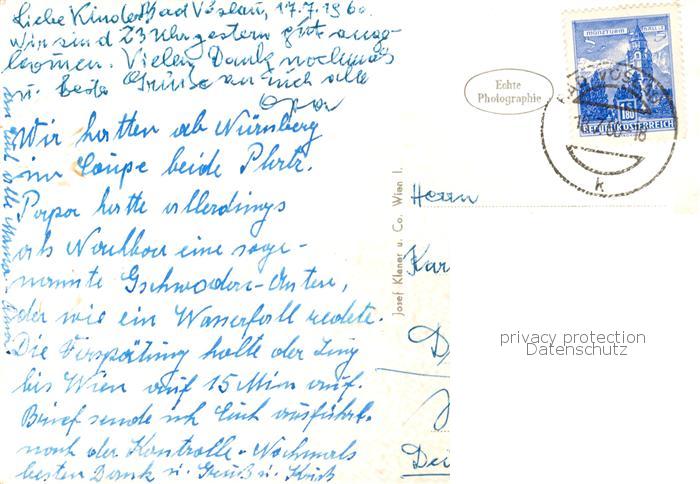 Liebe Kinder! Bad Vöslau, 17.7.1960
Wir sind 23 Uhr gestern gut ange-
kommen. Vielen Dank nochmals
u. beste Grüße an Euch alle
Opa
Wir hatten ab Nürnberg
im Coupe beide Platz.
Papa hatte allerdings
als Nachbar eine soge-
nannte
der wie ein Wasserfall redete.
Die Verspätung holte der Zug
bis Wien auf 15 Min auf.
Brief sende ich Euch ausführl.
nach der Kontrolle. Nochmals
besten Dank u. Gruß u. Kuß
an Euch alle Mama
Echte
Photographie
MÜNZTURM HALL
1.80
REPUBLIK ÖSTERREICH
BAD VÖSLAU
k
Josef Klaner u. Co. Wien I.
Herrn
Kar
D
Dei
privacy protection
Datenschutz